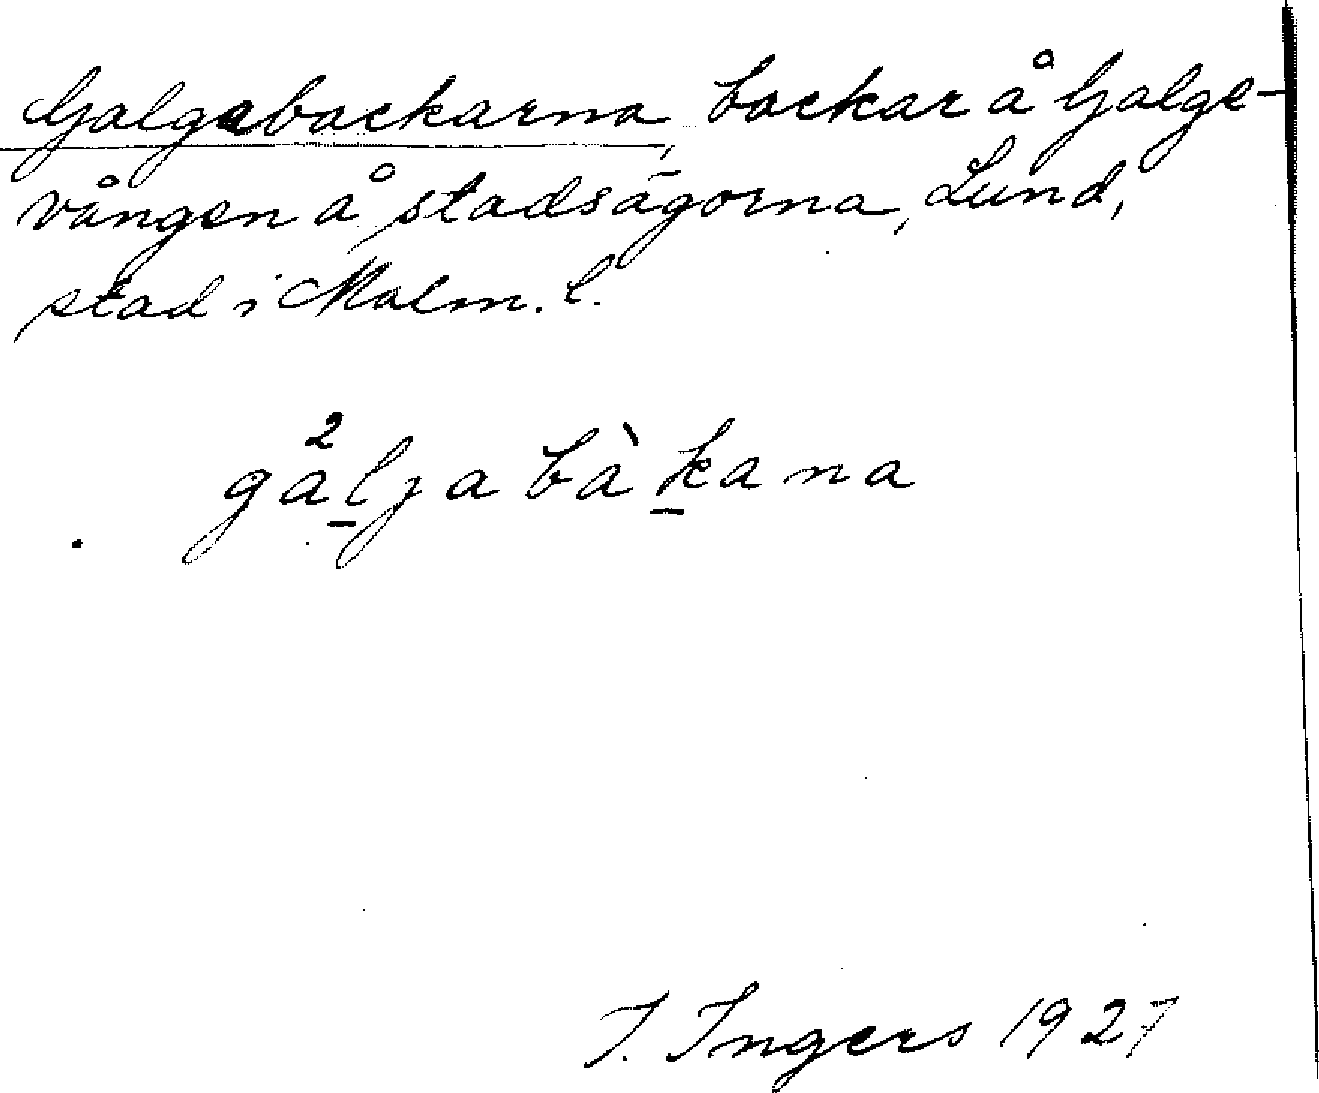 Galgebackarna, backar å Galge-
vången å stadsägorna, Lund,
stad i Malm. l.
ga²ljabàkana
I. Ingers 1927